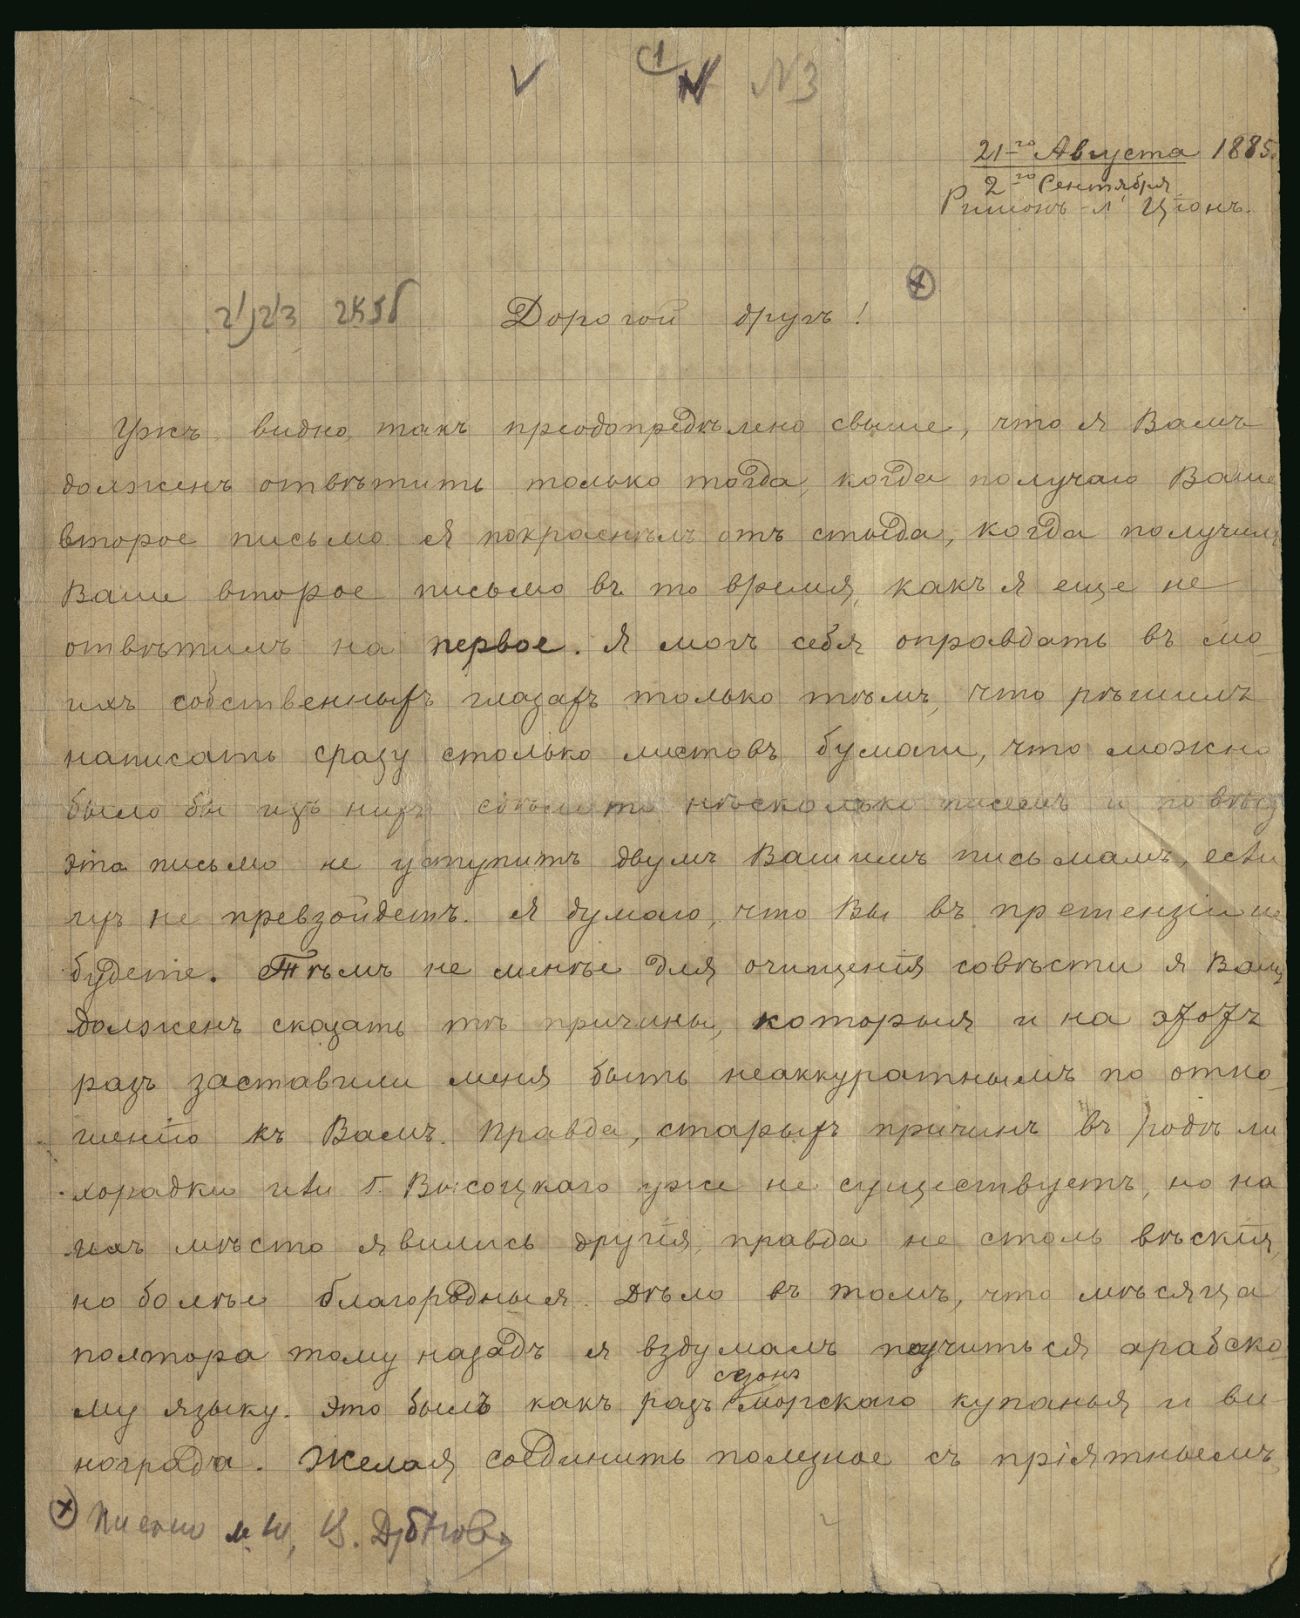 1
№3
21-го Августа 1885.
2го Сентября
Ришонъ-л' Ціонъ.
Дорогой другъ!
Ужъ, видно, такъ преодопредѣлено свыше, что я Вамъ
долженъ отвѣтить только тогда, когда получаю Ваше
второе письмо. Я покраснѣлъ отъ стыда, когда получилъ
Ваше второе письмо въ то время, какъ я еще не
отвѣтилъ на первое. Я могъ себя оправдать въ мо-
ихъ собственныхъ глазахъ только тѣмъ, что рѣшилъ
написать сразу столько листовъ бумаги, что можно
было бы изъ нихъ сдѣлать нѣсколько писемъ и по вѣсу
это письмо не уступитъ двумъ Вашимъ письмамъ, если
ихъ не превзойдетъ. Я думаю, что Вы въ претензіи не
будете. Тѣмъ не менѣе для очищенія совѣсти я Вамъ
долженъ сказать тѣ причины, которыя и на этотъ
разъ заставили меня быть неаккуратнымъ по отно-
шенію къ Вамъ. Правда, старыхъ причинъ въ родѣ ли-
хорадки или г. Высоцкаго уже не существуетъ, но на
ихъ мѣсто явились другія, правда не столь вѣскія,
но болѣе благородныя. Дѣло въ томъ, что мѣсяца
полтора тому назадъ я вздумалъ поучиться арабско-
му языку. Это былъ какъ разъ сезонъ морскаго купанья и ви-
нограда. Желая соединить полезное съ пріятнымъ
Письмо к Ш, Ц. Дубнову